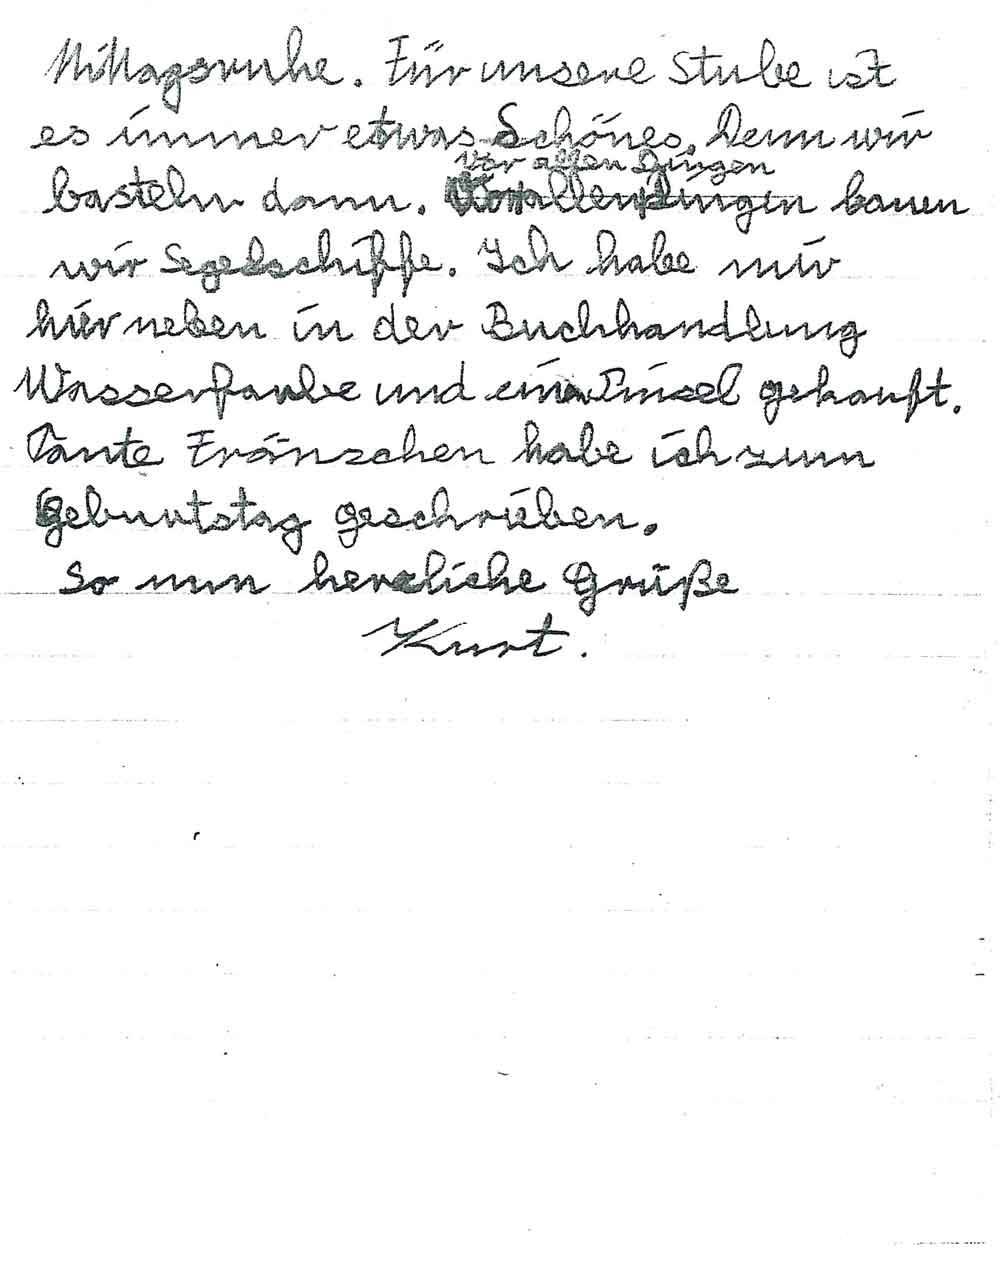 Mittagsruhe. Für unsere Stube ist
es immer etwas Schönes. Denn wir
vor allen Dingen
basteln dann. Vorallendingen bauen
wir Segelschiffe. Ich habe mir
hier neben in der Buchhandlung
Wasserfarbe und einen Pinsel gekauft.
Tante Fränzchen habe ich zum
Geburtstag geschrieben.
So nun herzliche Grüße
Kurt.